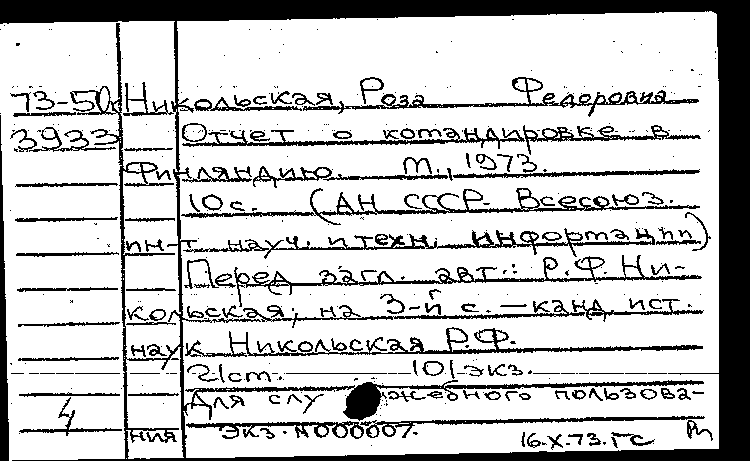 73-50с Никольская, Роза Федоровна
3933 Отчет о командировке в
Финляндию. М., 1973.
10 с. (АН СССР. Всесоюз.
ин-т науч. и техн. информации)
Перед загл. авт.: Р.Ф. Ни-
кольская; на 3-й с. — канд. ист.
наук Никольская Р.Ф.
21 ст. 101 экз.
Для служебного пользова-
4 ния экз. N000007. 16.X.73. ГС